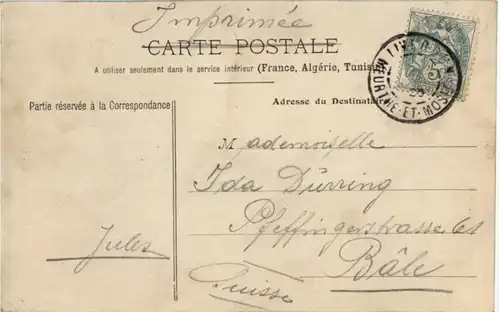 Imprimée
CARTE POSTALE
A utiliser seulement dans le service intérieur (France, Algérie, Tunisie
Partie réservée à la Correspondance
Adresse du Destinataire
Mademoiselle
Ida Dürring
Pfeffingerstrasse 61
Bâle
Suisse
Jules
MEURTHE-ET-MOSELLE
5